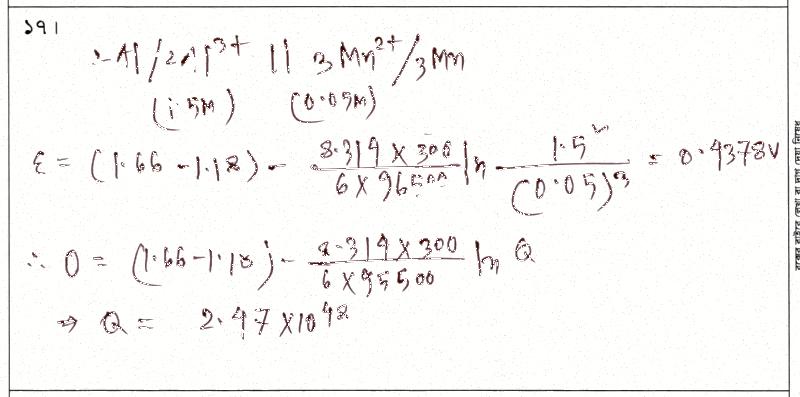 ১৭।
∴ Al/2Al³⁺ || 3Mn²⁺/3Mn
(1.5M) (0.05M)
ε = (1.66 - 1.18) - 8.314 × 300 / 6 × 96500 ln 1.5² / (0.05)³ = 0.4378V
∴ 0 = (1.66 - 1.18) - 8.314 × 300 / 6 × 96500 ln Q
⇒ Q = 2.47 × 10⁴⁸